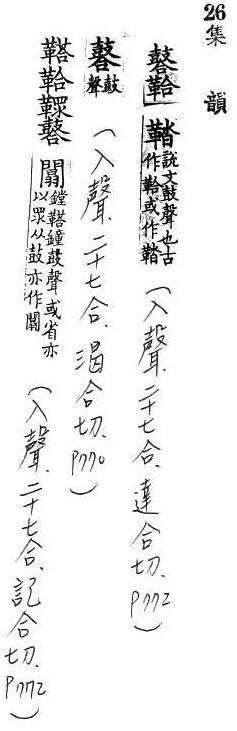 26集 韻
鼛鞈 鞳 說文鼓聲也古作鞈或作鞳(入聲.二十七合、達合切.P772)
鼓聲(入聲.二十七合.渴合切.P770)
鞳鞈 鏜鞳鐘鼓聲或省亦以眔从鼓亦作闒(入聲.二十七合、託合切.P772)